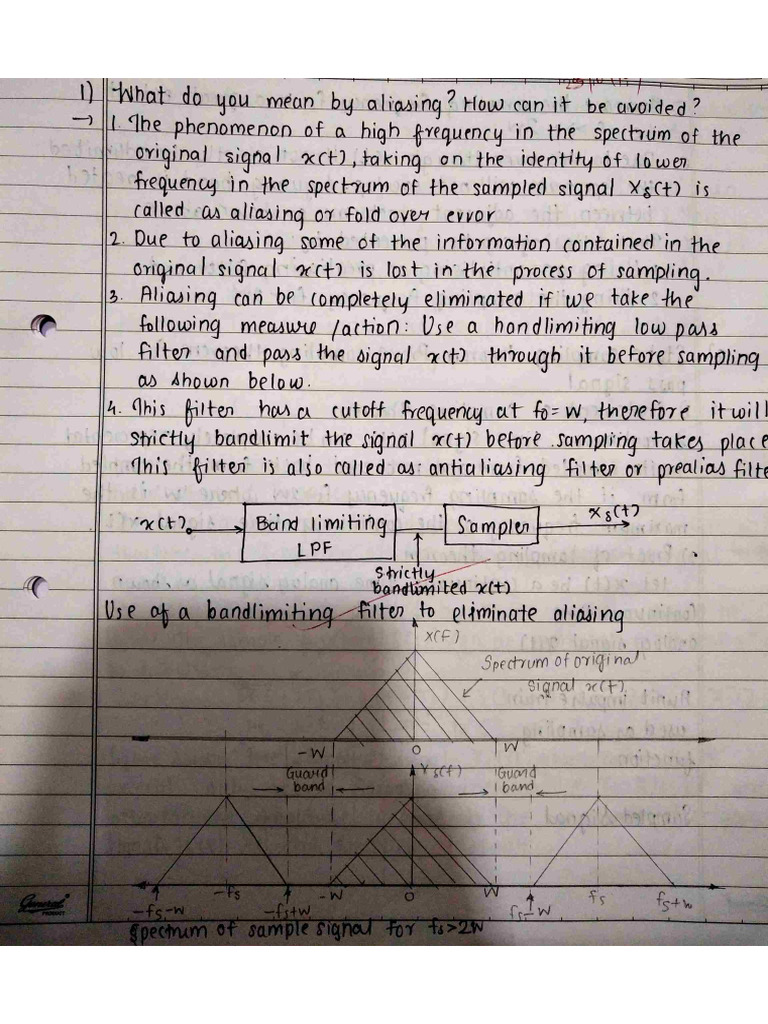 1) What do you mean by aliasing? How can it be avoided?
→ 1. The phenomenon of a high frequency in the spectrum of the
original signal x(t), taking on the identity of lower
frequency in the spectrum of the sampled signal Xδ(t) is
called as aliasing or fold over error
2. Due to aliasing some of the information contained in the
original signal x(t) is lost in the process of sampling.
3. Aliasing can be completely eliminated if we take the
following measure /action: Use a handlimiting low pass
filter and pass the signal x(t) through it before sampling
as shown below.
4. This filter has a cutoff frequency at fo=W, therefore it will
strictly bandlimit the signal x(t) before sampling takes place
This filter is also called as: antialiasing filter or prealias filte
x(t) Band limiting Sampler xδ(t)
LPF
Strictly
bandlimited x(t)
Use of a bandlimiting filter to eliminate aliasing
X(f)
Spectrum of original
signal x(t).
-W 0 W
Guard Xδ(f) Guard
band band
-fs -W 0 W fs
-fs-W -fs+W fs-W fs+W
General
PRODUCT
Spectrum of sample signal for fs>2W